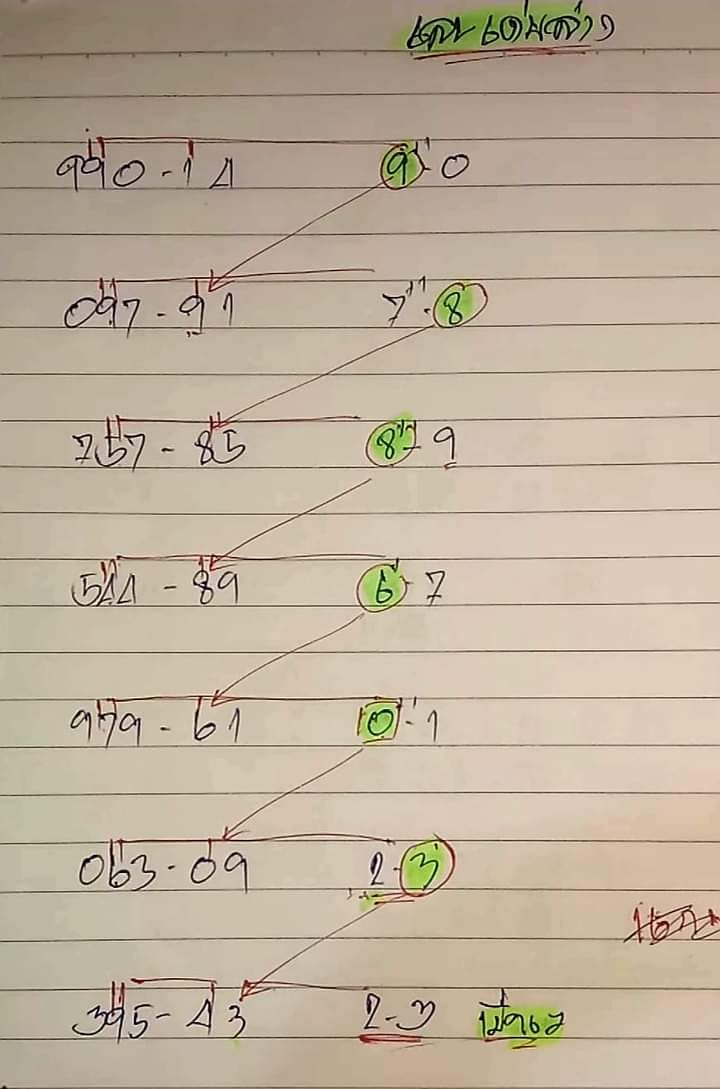 เลขเด่นล่าง
990-14 9-0
097-91 7-8
757-85 8-9
544-89 6-7
979-61 0-1
063-09 2-3
395-43 2-3